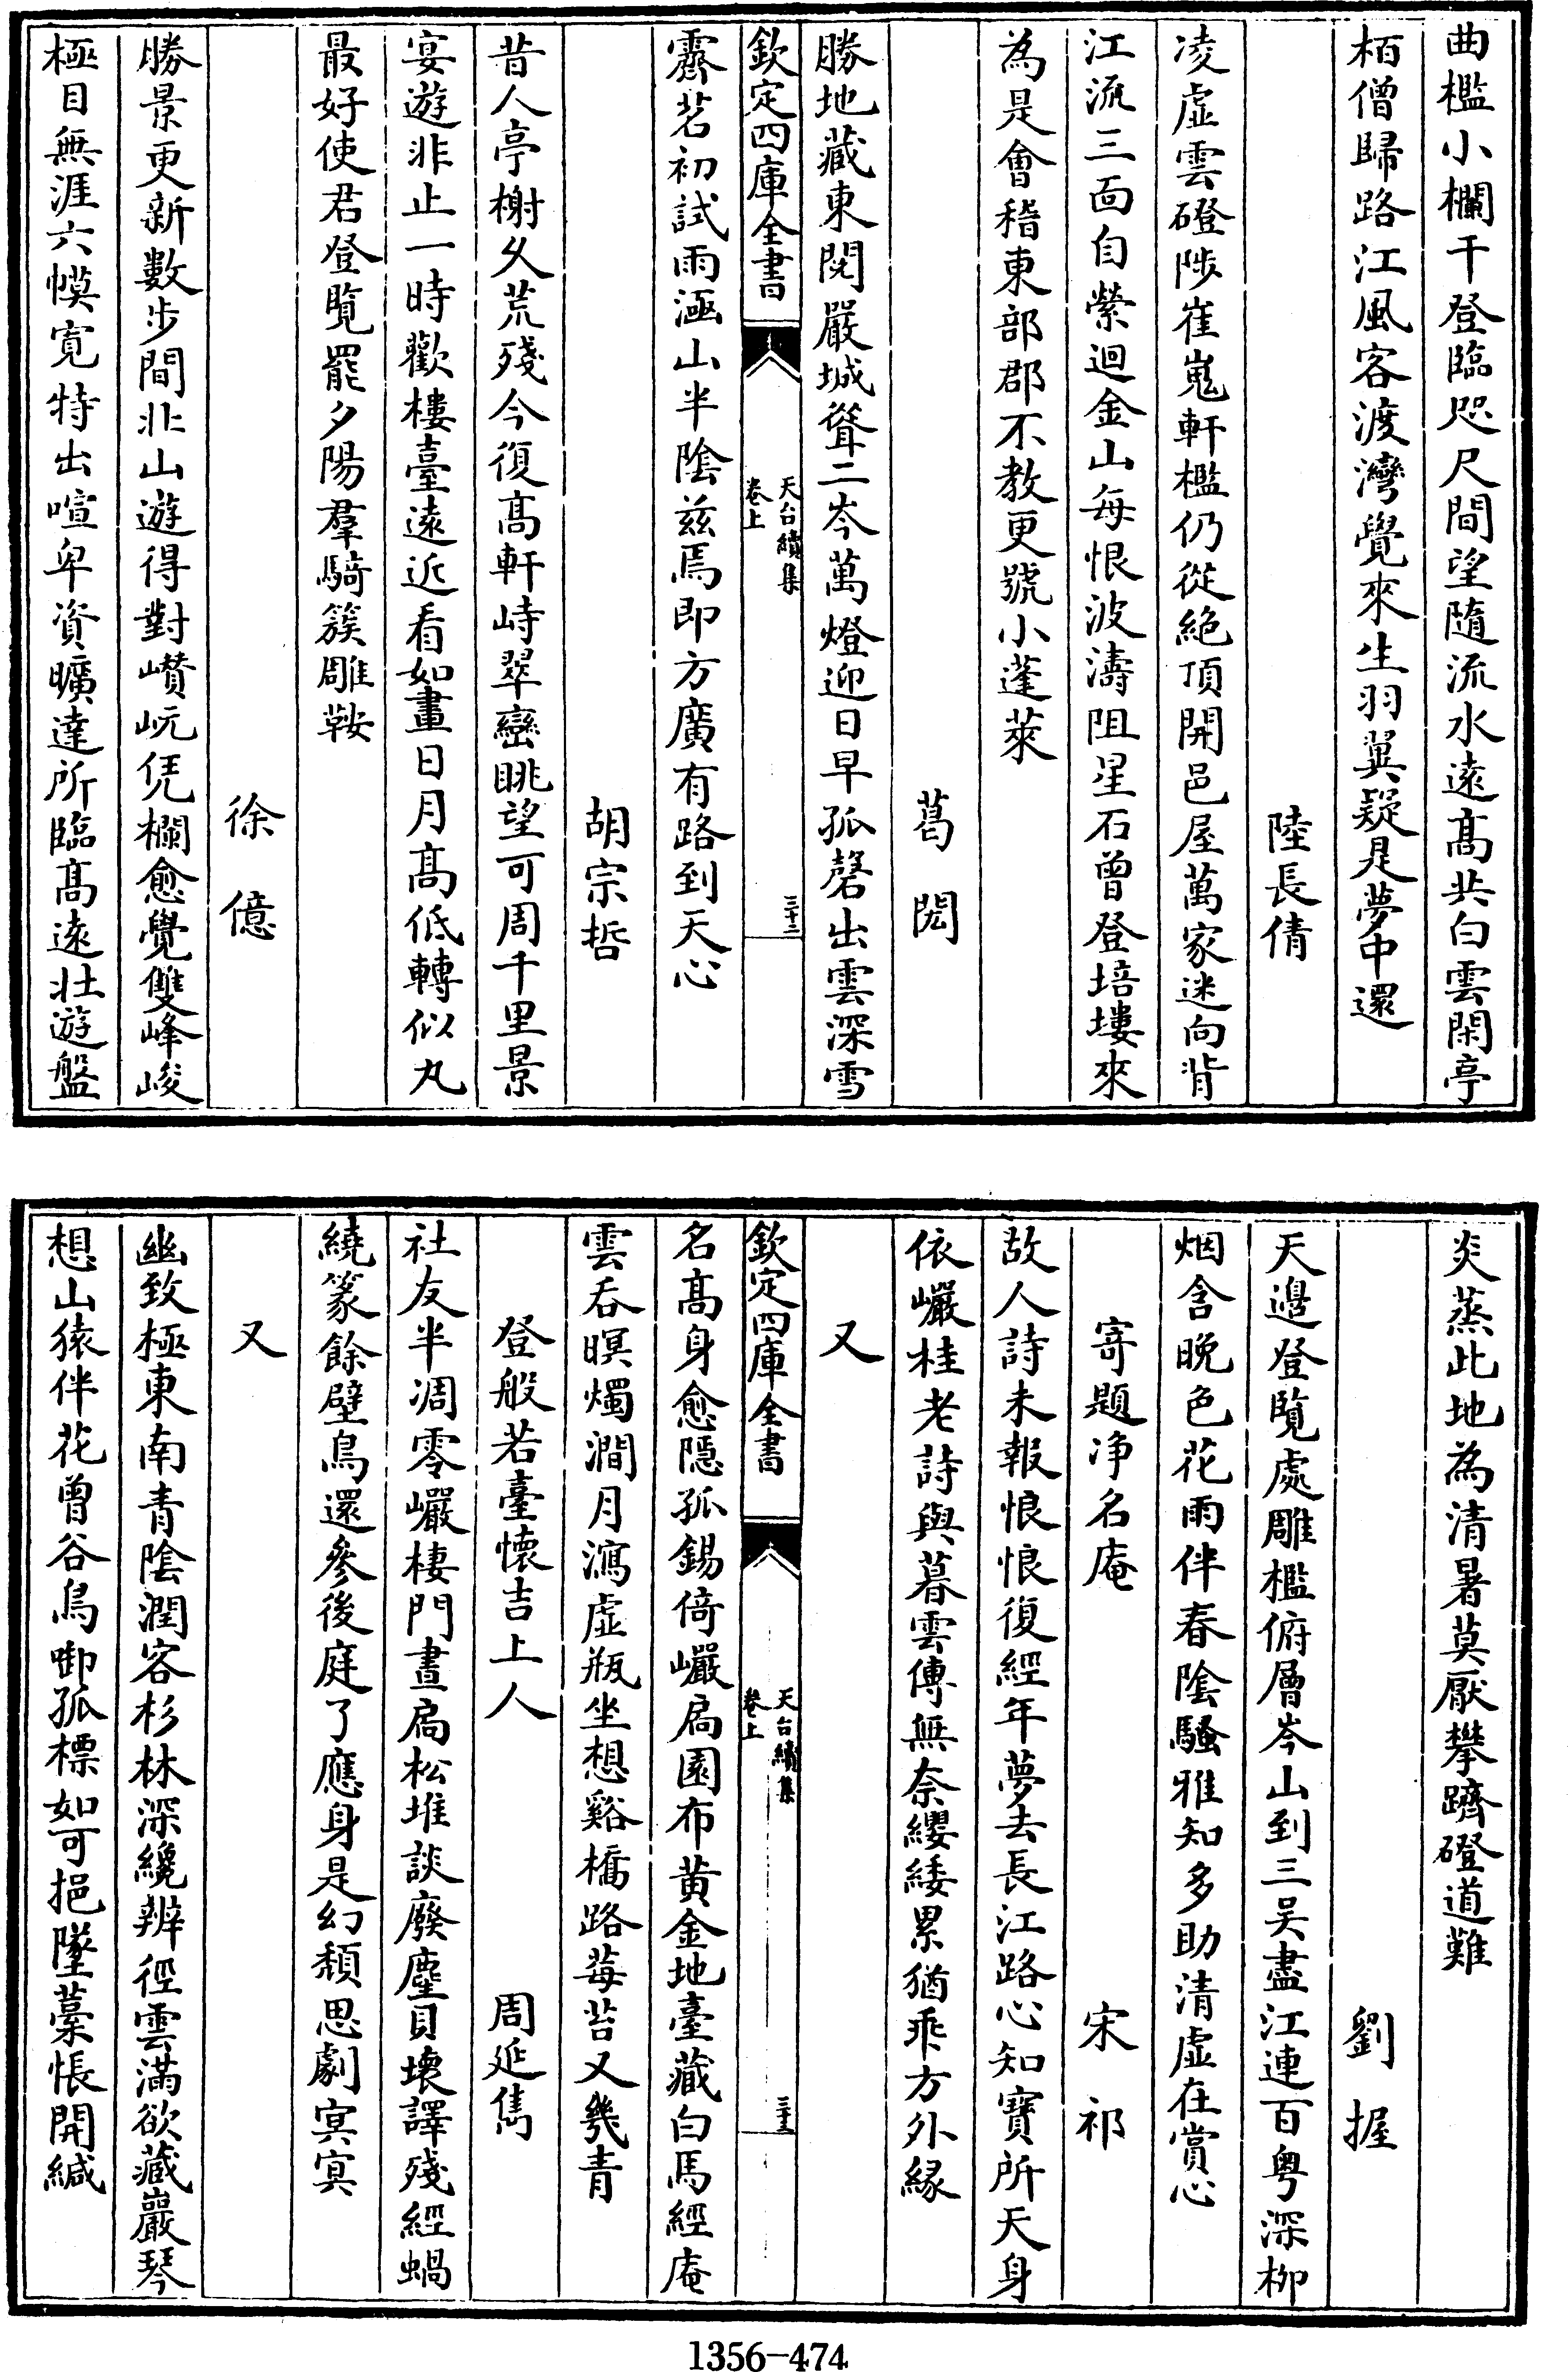 曲檻小欄干登臨咫尺間望隨流水逺髙共白雲閑亭
栢僧歸路江風客渡灣覺來生羽翼疑是夢中還
陸長倩
凌虛雲磴陟崔嵬軒檻仍從絶頂開邑屋萬家迷向背
江流三面自縈迴金山每恨波濤阻星石曽登培塿來
為是會稽東部郡不教更號小蓬萊
葛閎
勝地藏東閎嚴城聳二岑萬燈迎日早孤磬出雲深雪
欽定四庫全書
天台續集
卷上
三十二
霽茗初試雨涵山半隂兹焉即方廣有路到天心
胡宗哲
昔人亭榭久荒殘今復髙軒峙翠巒眺望可周千里景
宴遊非止一時歡樓臺逺近看如畫日月髙低轉似丸
最好使君登覽罷夕陽羣騎簇雕鞍
徐億
勝景更新數步間北山遊得對巑岏凭欄愈覺雙峰峻
極目無涯六幙寛特出喧卑資曠達所臨髙逺壯遊盤
炎蒸此地為清暑莫厭攀躋磴道難
劉握
天邉登覽處雕檻俯層岑山到三吴盡江連百粤深栁
烟含晚色花雨伴春隂騷雅知多助清虛在賞心
寄題净名庵
宋祁
故人詩未報悢悢復經年夢去長江路心知寳所天身
依巗桂老詩與暮雲傳無奈纓緌累猶乖方外縁
又
名髙身愈隱孤錫倚巗扄園布黄金地臺藏白馬經庵
欽定四庫全書
天台續集
卷上
三十三
雲吞暝燭澗月瀉虛瓶坐想谿橋路莓苔又幾青
登般若臺懷吉上人
周延雋
社友半凋零巗棲門晝扄松堆談廢麈貝壊譯殘經蝸
繞篆餘壁鳥還參後庭了應身是幻頹思劇㝠㝠
又
幽致極東南青隂潤客杉林深纔辨徑雲滿欲藏巖琴
想山猿伴花曽谷鳥啣孤標如可挹墜藁悵開緘
1356-474